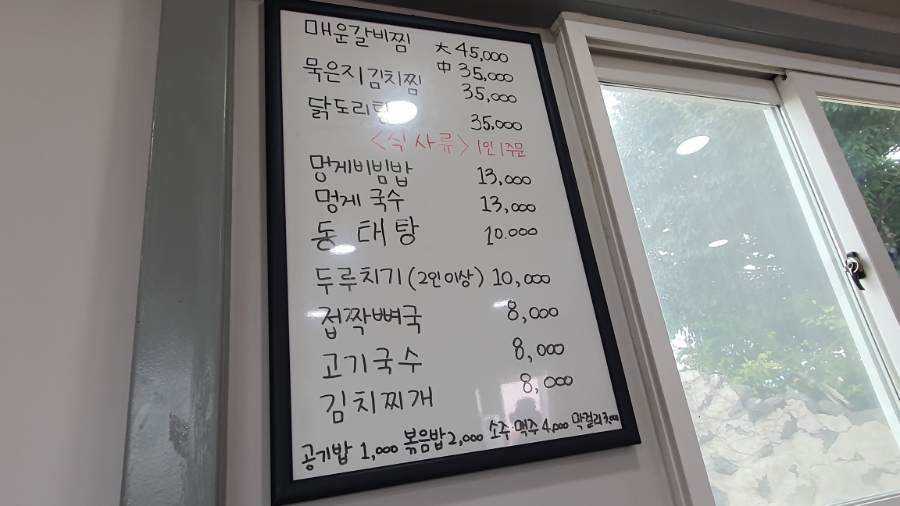 매운갈비찜 大 45,000
中 35,000
묵은지김치찜 35,000
닭도리탕 35,000
<식사류> 1인 1주문
멍게비빔밥 13,000
멍게 국수 13,000
동태탕 10.000
두루치기 (2인이상) 10,000
접짝뼈국 8,000
고기국수 8,000
김치찌개 8,000
공기밥 1,000 볶음밥 2,000 소주·맥주 4,000 막걸리 3,000